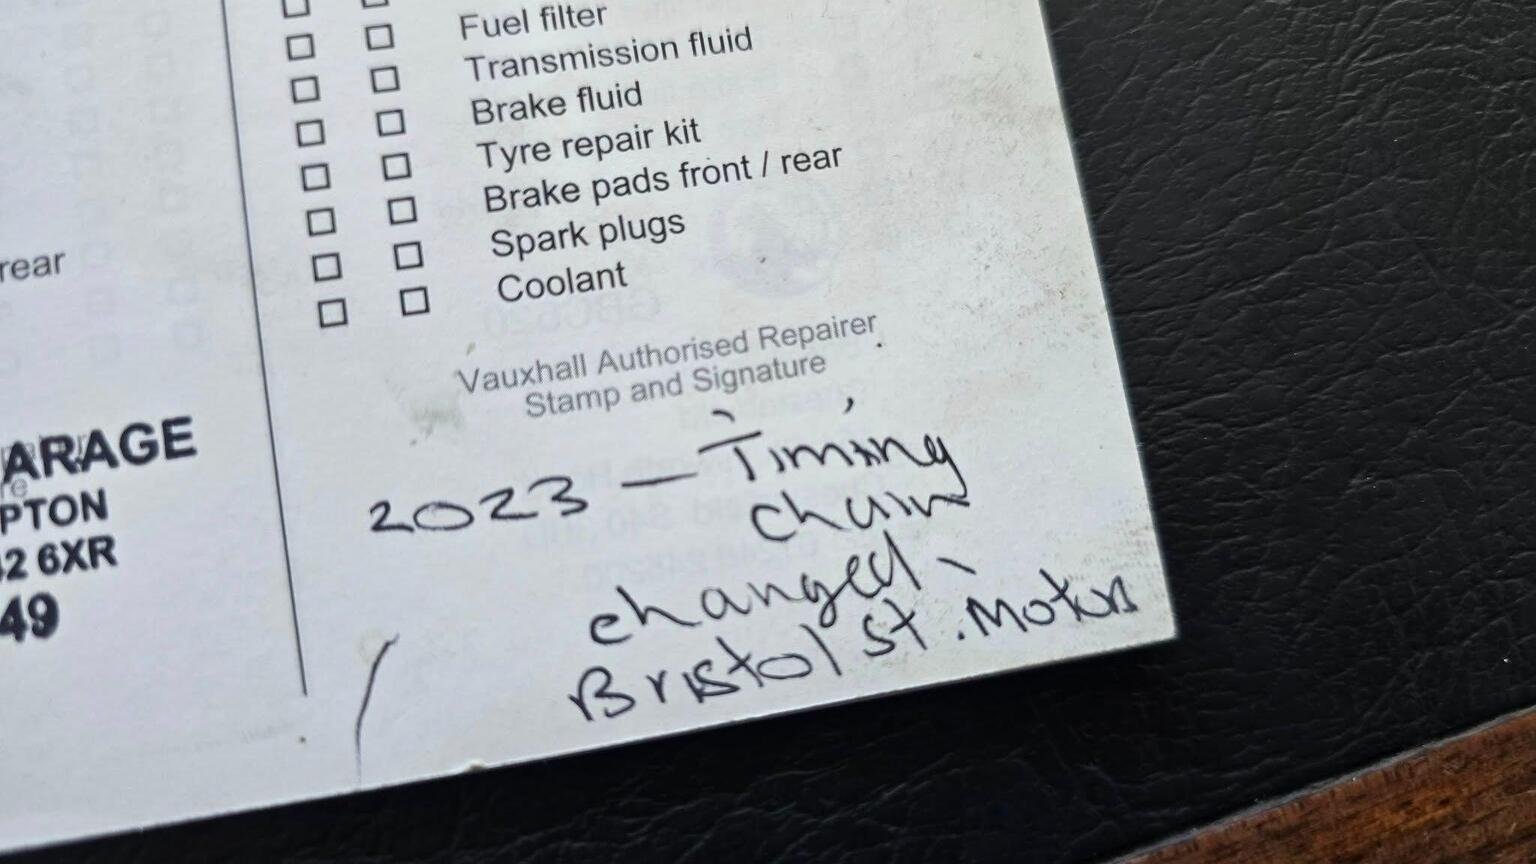 Fuel filter
Transmission fluid
Brake fluid
Tyre repair kit
Brake pads front / rear
Spark plugs
Coolant
Vauxhall Authorised Repairer
Stamp and Signature
2023 - Timing
chain
changed -
Bristol St. Motors
rear
ARAGE
PTON
2 6XR
49